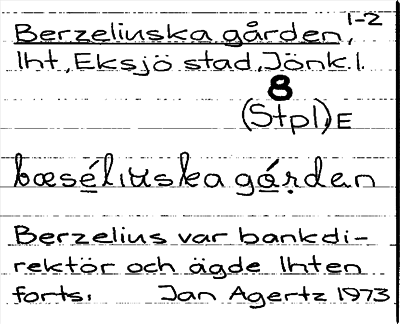 1-2
Berzeliuska gården,
lht, Eksjö stad, Jönk.l.
8
(Stpl) E
bæsé̲liuska gá̲ṛdan
Berzelius var bankdi-
rektör och ägde lhten
forts. Jan Agertz 1973